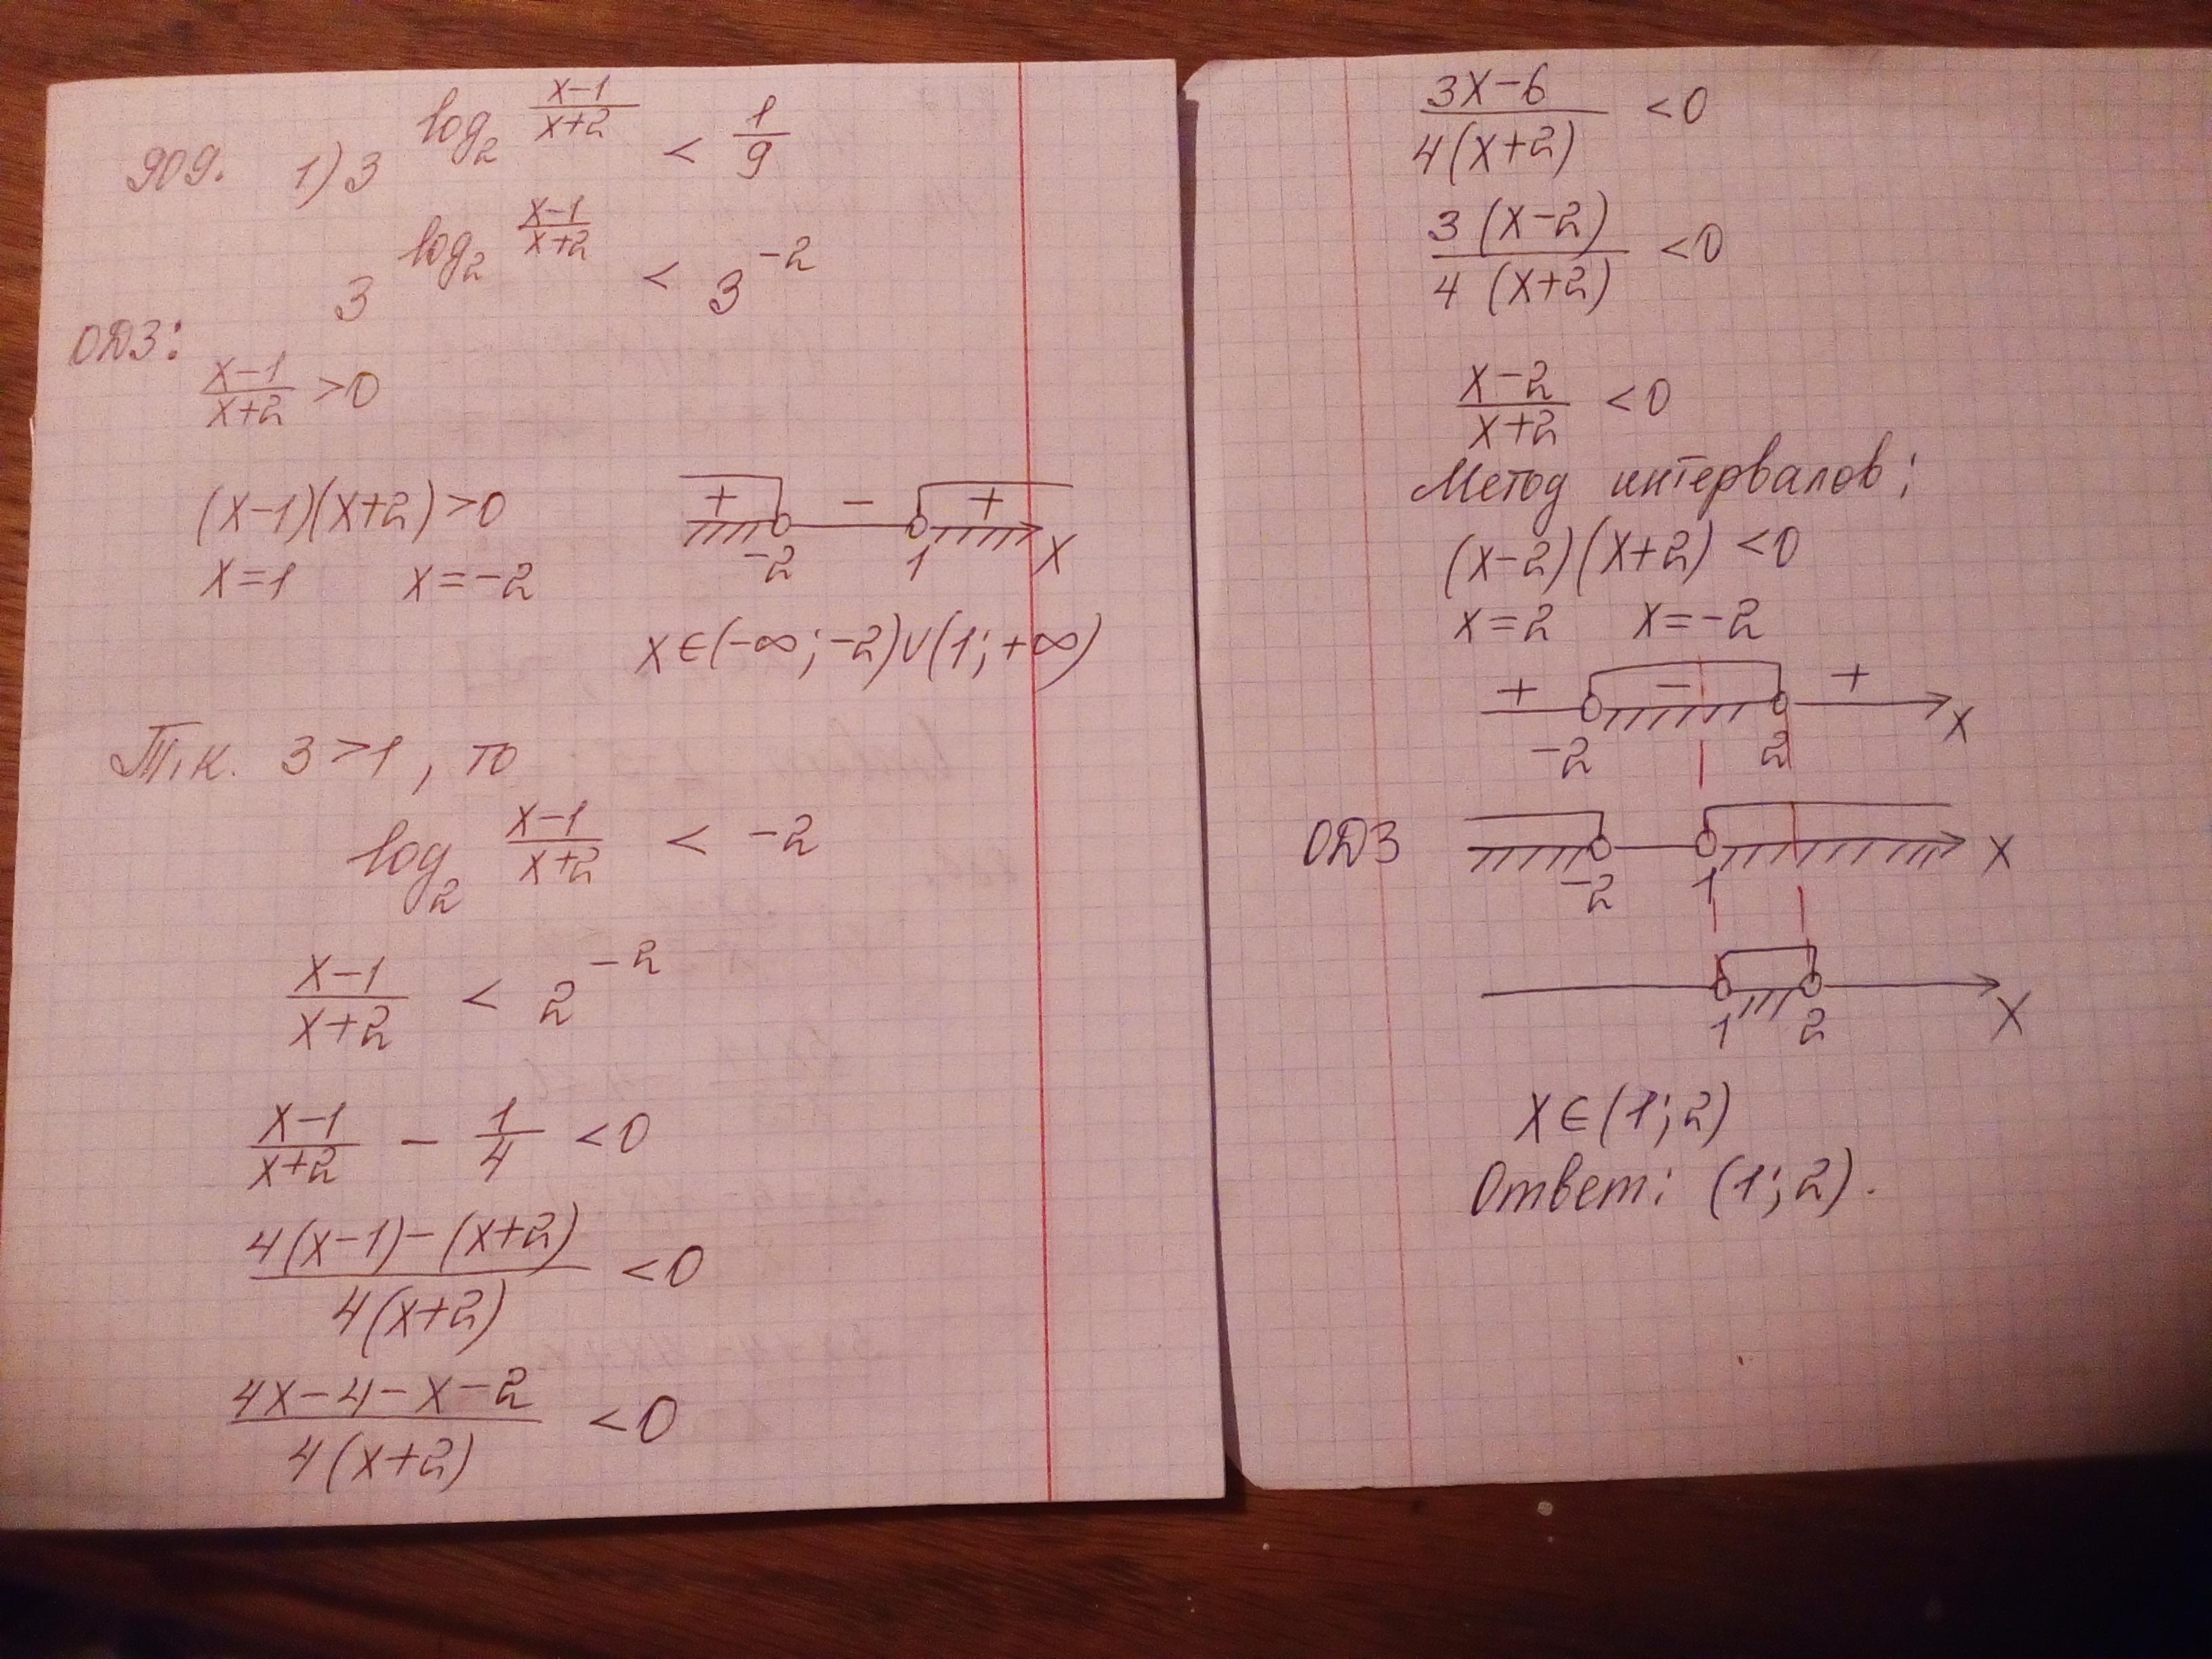 909. 1) 3^(log₂ (x-1)/(x+2)) < 1/9
3^(log₂ (x-1)/(x+2)) < 3^(-2)
ОДЗ:
(x-1)/(x+2) > 0
(x-1)(x+2) > 0
x=1 x=-2
+ - +
-2 1 x
x∈(-∞; -2)∪(1; +∞)
Т.к. 3 > 1, то
log₂ (x-1)/(x+2) < -2
(x-1)/(x+2) < 2^(-2)
(x-1)/(x+2) - 1/4 < 0
(4(x-1)-(x+2))/(4(x+2)) < 0
(4x-4-x-2)/(4(x+2)) < 0
(3x-6)/(4(x+2)) < 0
(3(x-2))/(4(x+2)) < 0
(x-2)/(x+2) < 0
Метод интервалов:
(x-2)(x+2) < 0
x=2 x=-2
+ - +
-2 2 x
ОДЗ -2 1 x
1 2 x
x∈(1; 2)
Ответ: (1; 2).